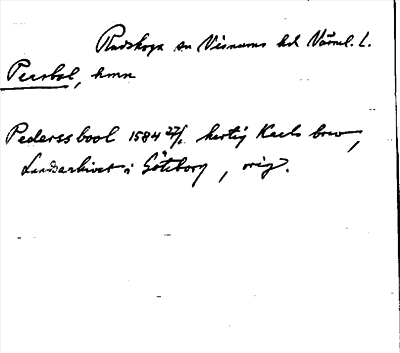 Rudskoga sn Visnums hd Värml. l.
Persbol, hmn
Pederssbool 1584 27/1 hertig Karls brev,
Landsarkivet i Göteborg, orig.